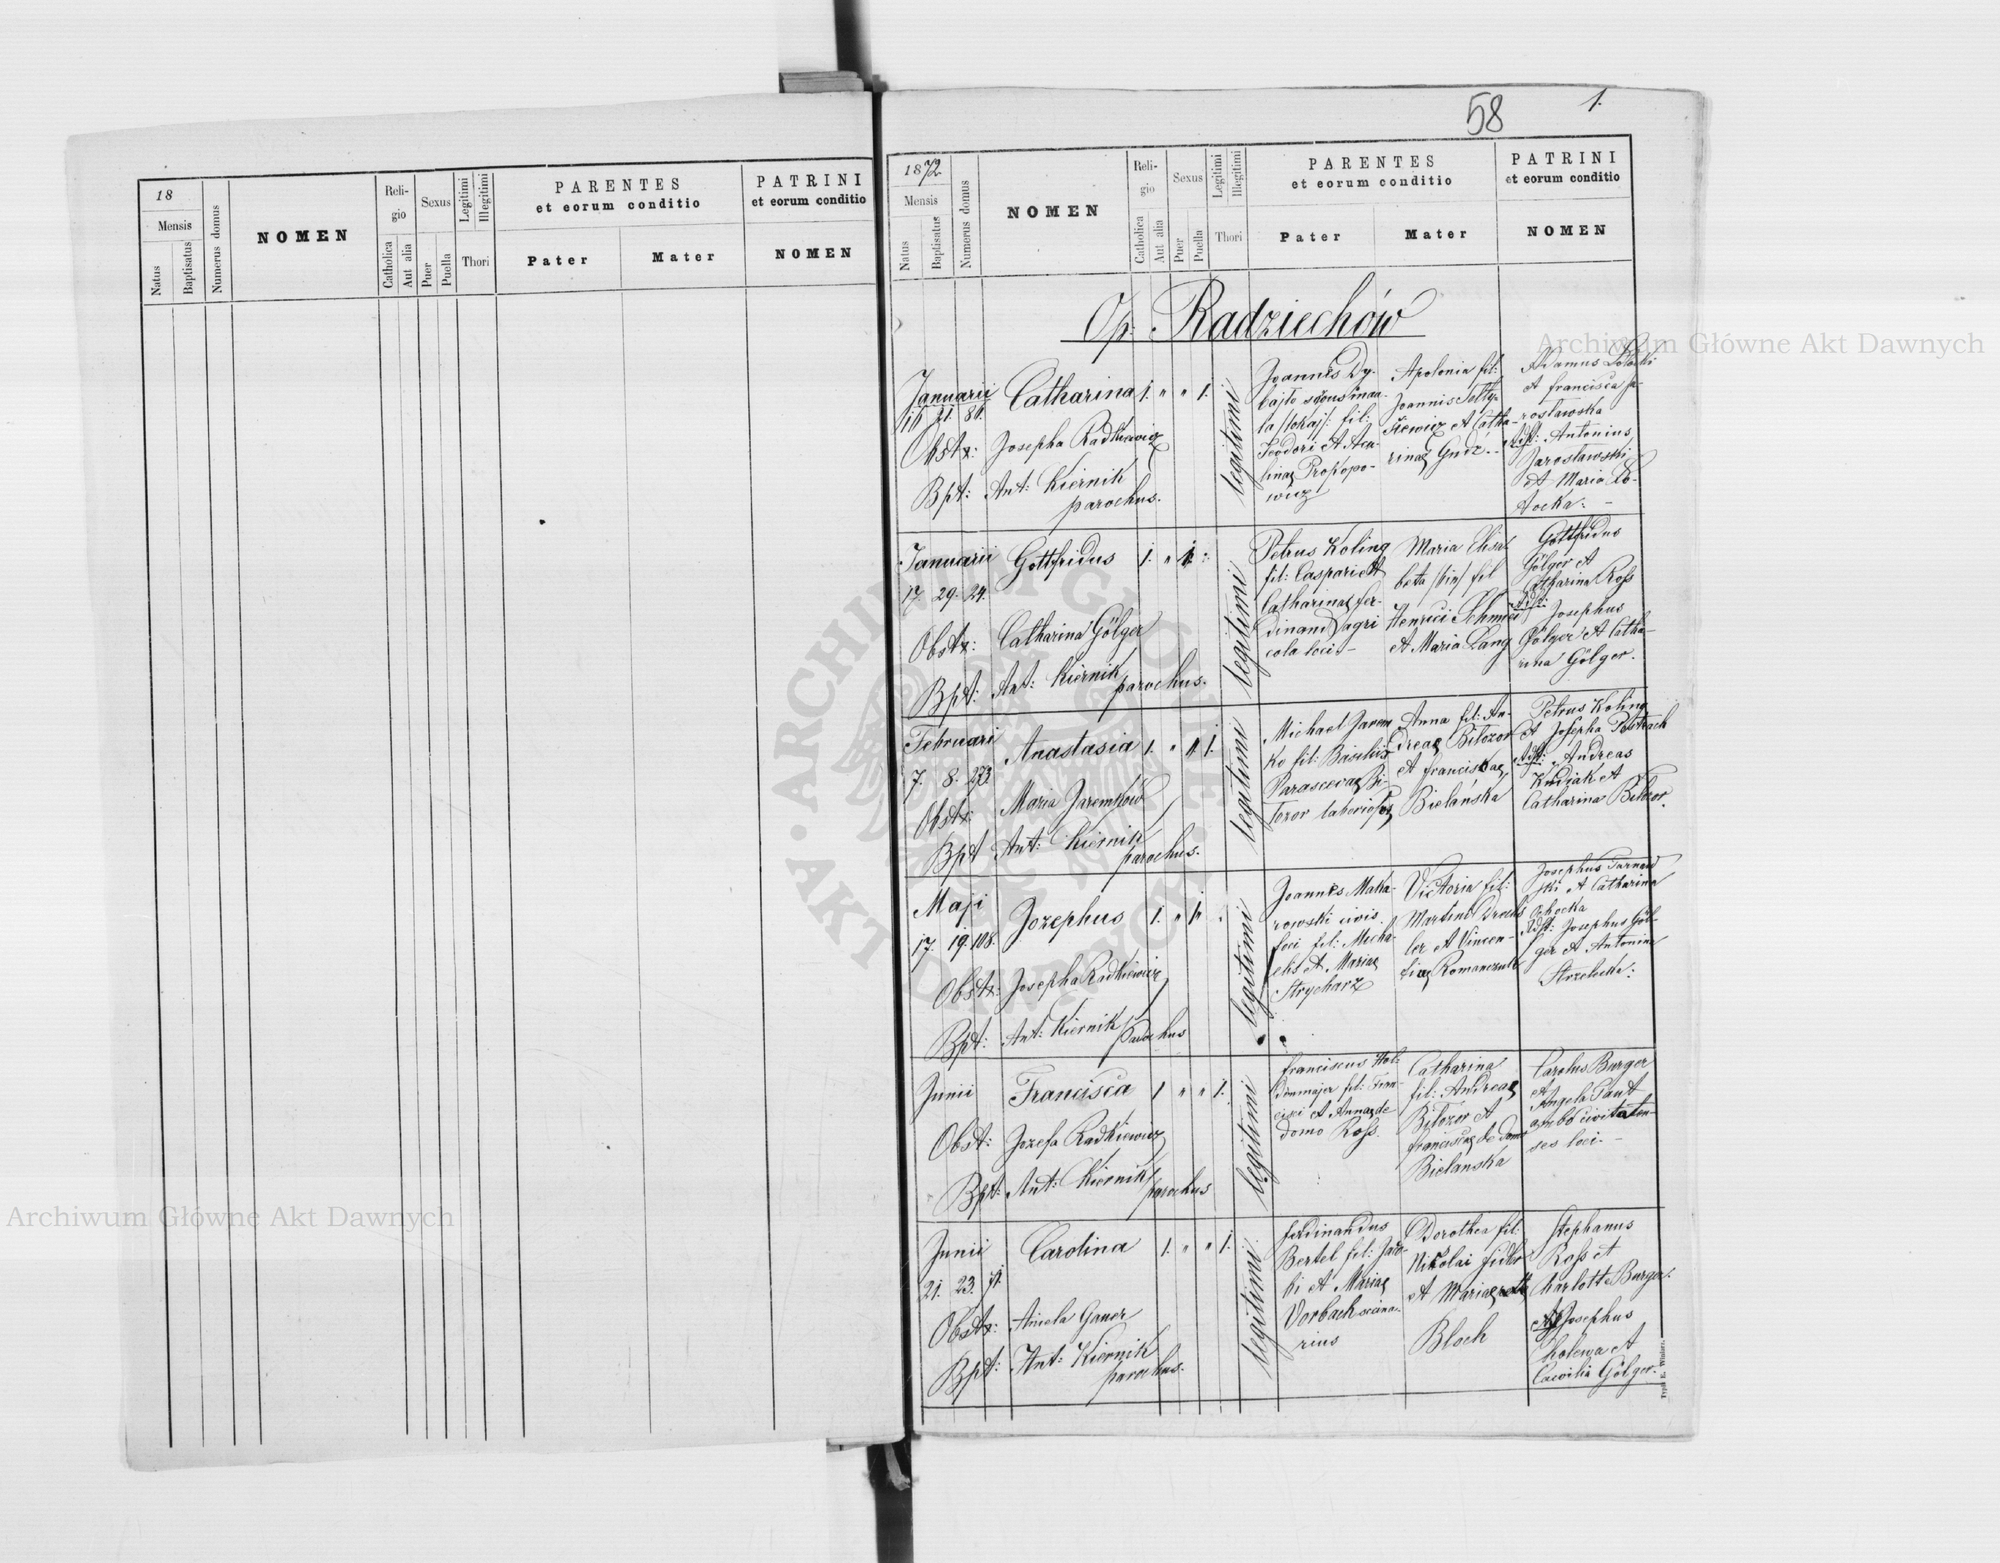 58
1.
18
Mensis
Natus
Baptisatus
Numerus domus
NOMEN
Religio
Catholica
Aut alia
Sexus
Puer
Puella
Legitimi
Illegitimi
Thori
PARENTES
et eorum conditio
Pater
Mater
PATRINI
et eorum conditio
NOMEN
1872
Mensis
Natus
Baptisatus
Numerus domus
NOMEN
Reli-
gio
Catholica
Aut alia
Sexus
Puer
Puella
Legitimi
Illegitimi
Thori
PARENTES
et eorum conditio
Pater
Mater
PATRINI
et eorum conditio
NOMEN
Op. Radziechów
Januarii
21.
Catharina 1. " " 1.
Obstx: Josepha Radkiewicz
Bpt: Ant: Kiernik
parochus.
legitimi
Joannes Dy-
fil:
Teodori et
Prokopo-
wicz
Apolonia fil:
Joannis
et Catha-
rinae
Adamus
et francisca Ja-
rosławska
Adst: Antonius
Jarosławski
et Maria Po-
tocka.
Januarii
17. 29. 24.
Gottfridus 1. "
Obstx: Catharina Gölger
Bpt: Ant: Kiernik
parochus.
legitimi
Petrus Koling
fil: Caspari et
Catharinae Fer-
dinand agri
cola loci
Maria Elisa
beta fil
Henrici Schmied
et Maria Lang
Gottfridus
Gölger et
Catharina Ross
Adst: Josephus
Gölger et Catha-
rina Gölger.
Februari
7. 8. 273
Anastasia 1. " " 1.
Obstx: Maria Jaremkow
Bpt Ant: Kiernik
parochus.
legitimi
Michael Jarem
ko fil: Basilii
Parascevae Bi-
tozor
Anna fil: An-
dreae Bitozor
et franciscae
Bielańska
Petrus Koling
et Josepha
Adst: Andreas
Kudjak et
Catharina Bitozor.
Maji
17. 19. 108.
Jozephus 1. "
Obstx: Josepha Radkiewicz
Bpt: Ant: Kiernik
Parochus
legitimi
Joannes Maka-
rowski civis
loci fil: Micha-
elis et Mariae
Strycharz
Victoria fil:
Martini Drechs
ler et Vincen-
tiae Romanczuk
Josephus Tarnaw
ski et Catharina
Adst: Josephus Göl-
ger et Antonina
Strzelecka.
Junii
Francisca 1 " " 1.
Obst: Jozefa Radkiewicz
Bpt: Ant: Kiernik
parochus
legitimi
franciscus Hol-
denmajer fil: Fran-
cisci et Annae de
domo Ross.
Catharina
fil: Andreae
Bitozor et
franciscae de domo
Bielanska
Carolus Burger
et
Angela Taut
ambo civitaten-
ses loci.
Junii
21. 23. 71.
Carolina 1. " " 1.
Obstx: Aniela Gauer
Bpt: Ant: Kiernik
parochus.
legitimi
ferdinandus
Bertel fil: Jaco-
bi et Mariae
Vorbach
Dorothea fil:
Nikolai
et Mariae
Bloch
Stephanus
Ross et
Charlotte Burger.
Josephus
et
Caecilia Gölger.
Typis E. Winiarz.
Archiwum Główne Akt Dawnych
Archiwum Główne Akt Dawnych
ARCHIWUM GŁÓWNE AKT DAWNYCH